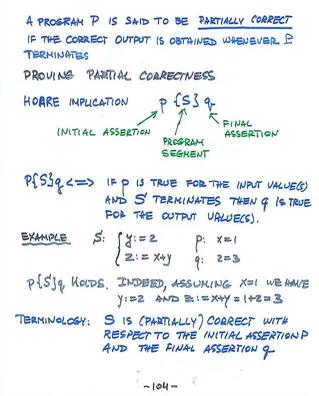 A PROGRAM P IS SAID TO BE PARTIALLY CORRECT
IF THE CORRECT OUTPUT IS OBTAINED WHENEVER P
TERMINATES
PROVING PARTIAL CORRECTNESS
HOARE IMPLICATION p {S} q
INITIAL ASSERTION
PROGRAM SEGMENT
FINAL ASSERTION
P{S}q <=> IF p IS TRUE FOR THE INPUT VALUE(S)
AND S TERMINATES THEN q IS TRUE
FOR THE OUTPUT VALUE(S).
EXAMPLE S: { y:=2 p: x=1
z:=x+y q: z=3
p{S}q HOLDS. INDEED, ASSUMING x=1 WE HAVE
y:=2 AND z:=x+y=1+2=3
TERMINOLOGY: S IS (PARTIALLY) CORRECT WITH
RESPECT TO THE INITIAL ASSERTION P
AND THE FINAL ASSERTION q
-104-